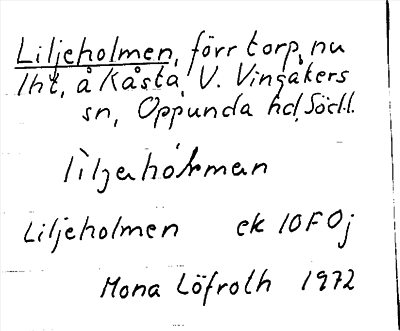 Liljeholmen, förr torp, nu
lht, å Kåsta, V. Vingåkers
sn, Oppunda hd, Södl.
lìljehólman
Liljeholmen ek 10F0j
Mona Löfroth 1972